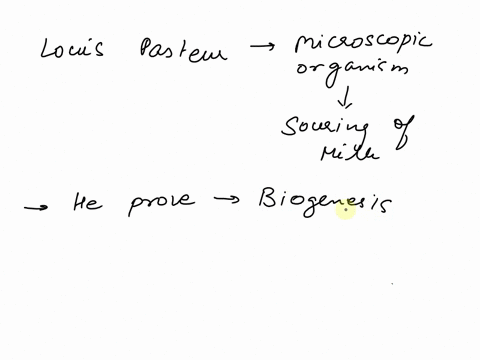 Louis Pasteur → Microscopic
organism
↓
Souring of
Milk
→ He prove → Biogenesis